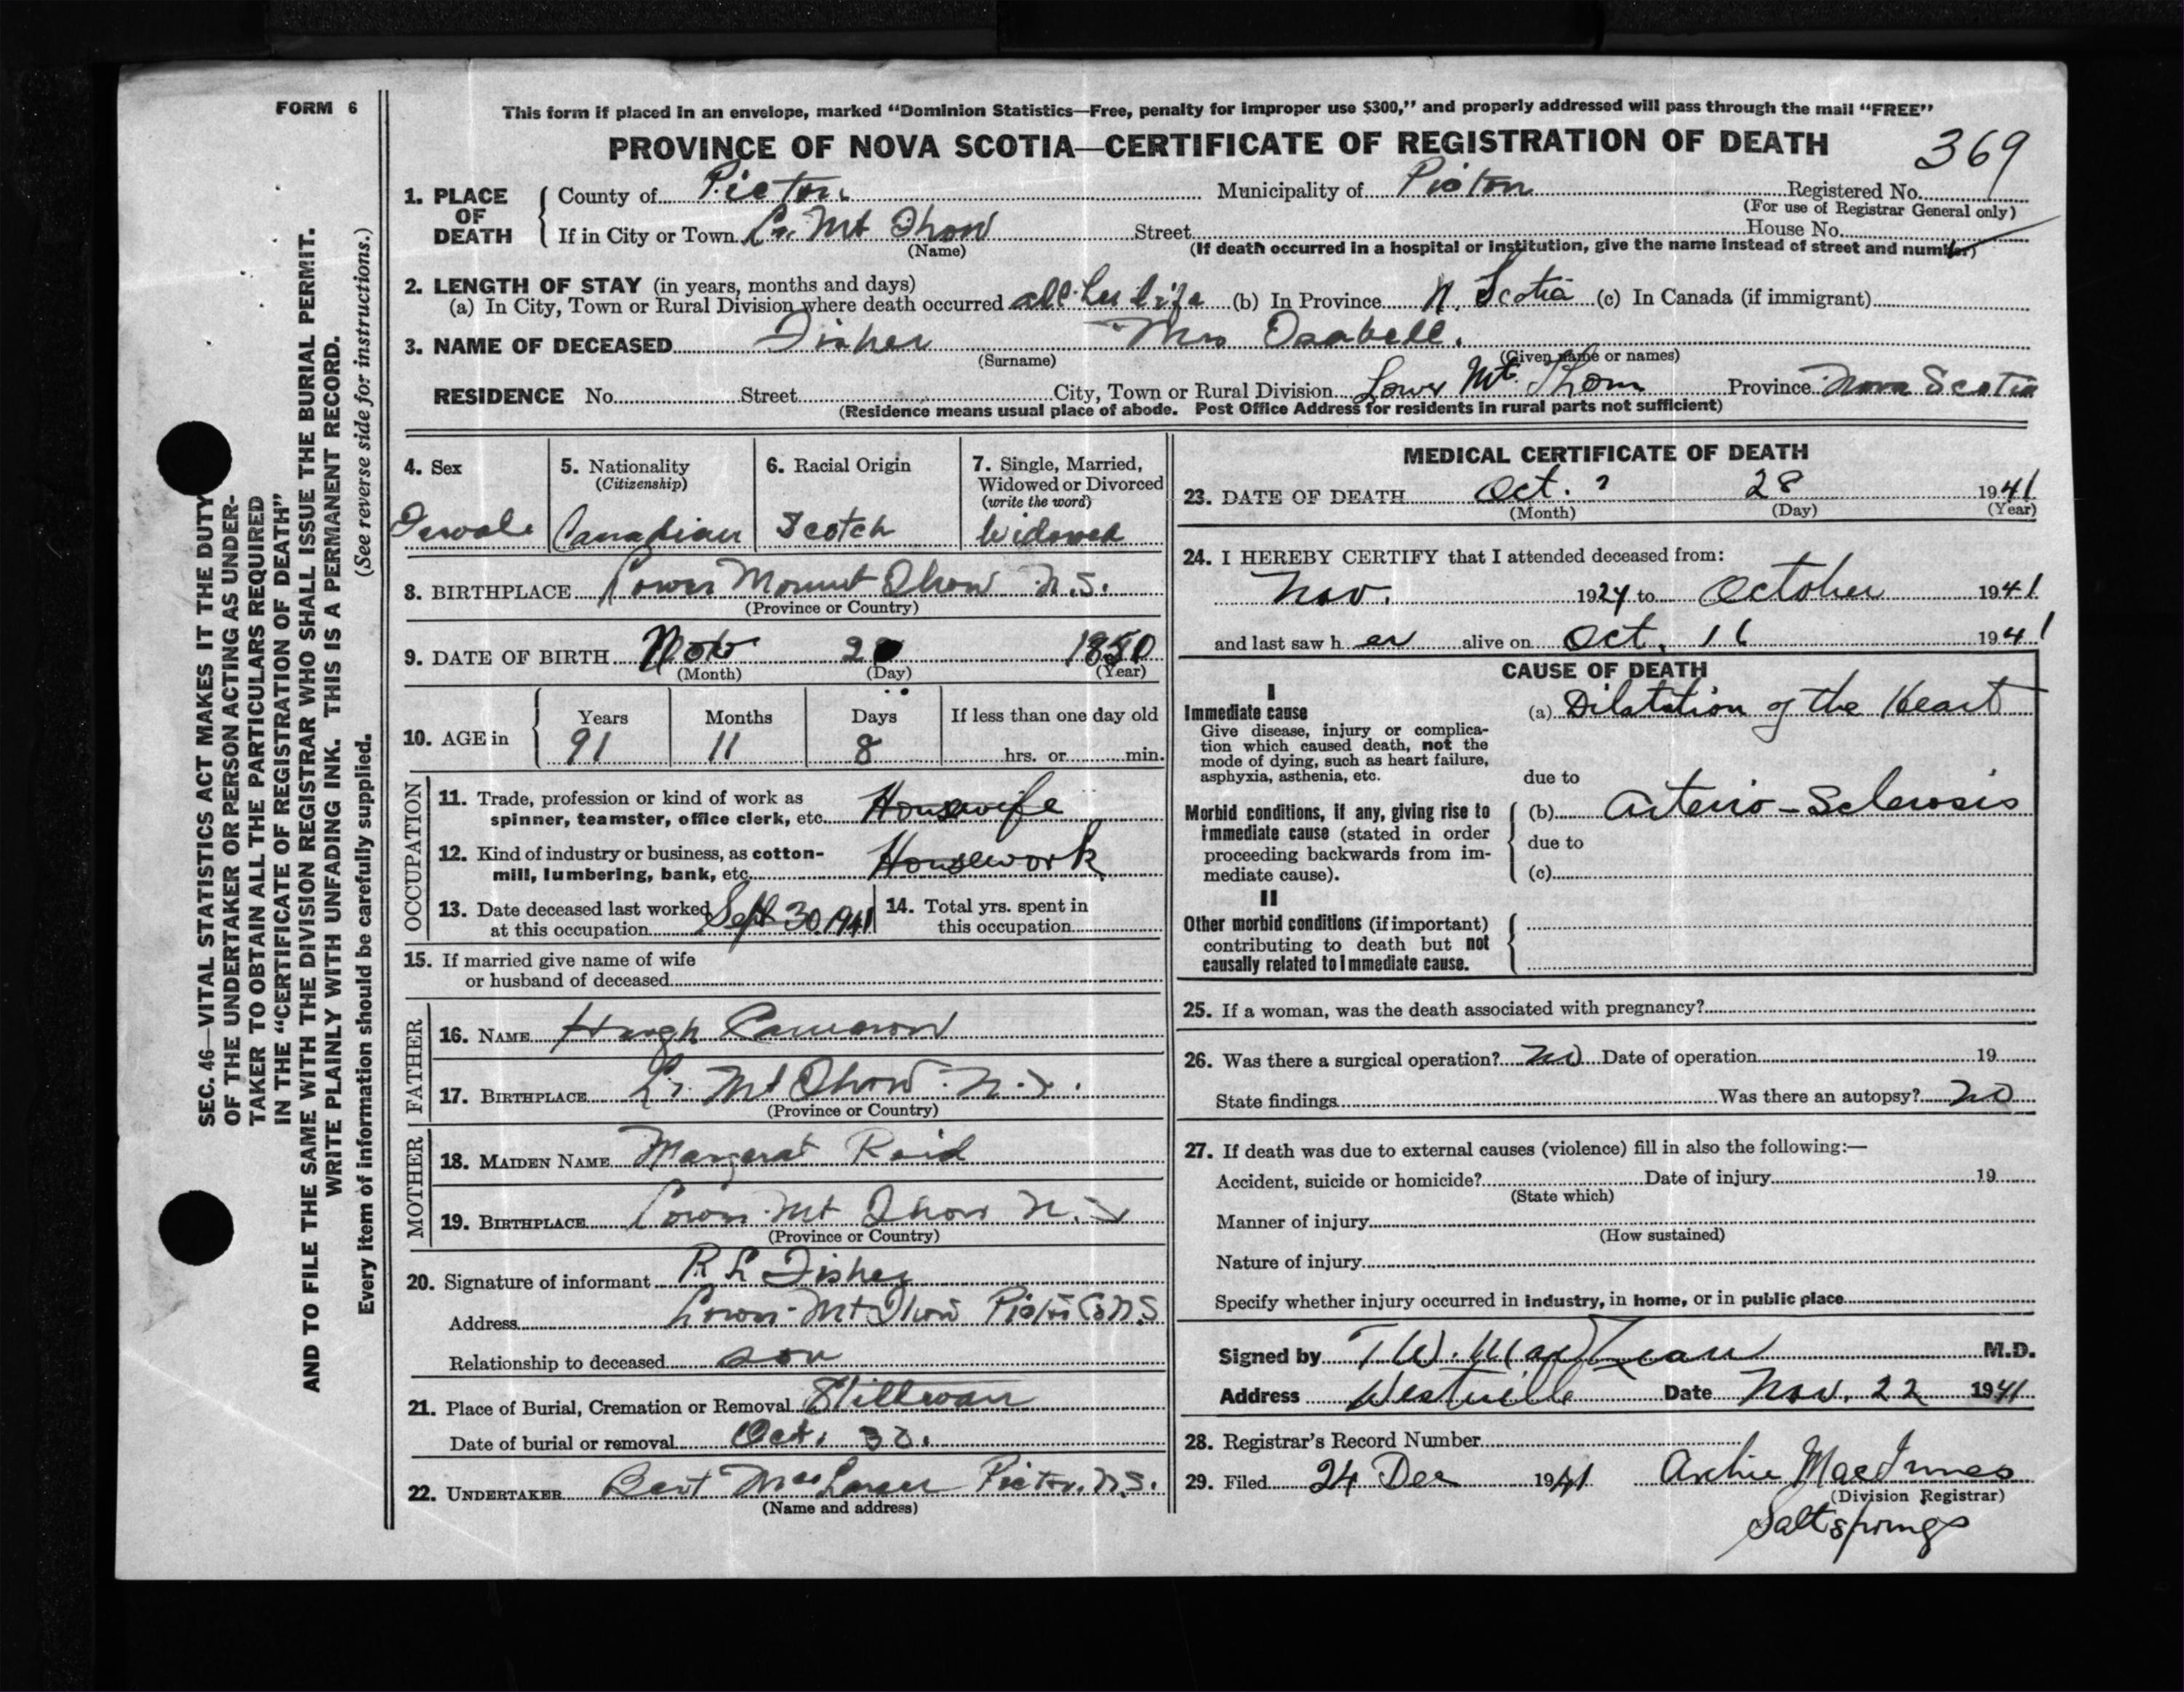 FORM 6
This form if placed in an envelope, marked “Dominion Statistics—Free, penalty for improper use $300,” and properly addressed will pass through the mail “FREE”
PROVINCE OF NOVA SCOTIA—CERTIFICATE OF REGISTRATION OF DEATH
369
1. PLACE OF DEATH
County of Pictou Municipality of Pictou Registered No.
(For use of Registrar General only)
If in City or Town Lr. Mt Thom Street House No.
(Name) (If death occurred in a hospital or institution, give the name instead of street and number)
2. LENGTH OF STAY (in years, months and days)
(a) In City, Town or Rural Division where death occurred all her life (b) In Province N. Scotia (c) In Canada (if immigrant)
3. NAME OF DECEASED Fisher Mrs Isabell.
(Surname) (Given name or names)
RESIDENCE No. Street City, Town or Rural Division Lower Mt. Thom Province Nova Scotia
(Residence means usual place of abode. Post Office Address for residents in rural parts not sufficient)
4. Sex
Female
5. Nationality
(Citizenship)
Canadian
6. Racial Origin
Scotch
7. Single, Married,
Widowed or Divorced
(write the word)
Widowed
8. BIRTHPLACE Lower Mount Thom N.S.
(Province or Country)
9. DATE OF BIRTH Nov 20 1850
(Month) (Day) (Year)
10. AGE in
Years Months Days If less than one day old
91 11 8 hrs. or min.
OCCUPATION
11. Trade, profession or kind of work as
spinner, teamster, office clerk, etc. Housewife
12. Kind of industry or business, as cotton-
mill, lumbering, bank, etc. Housework
13. Date deceased last worked
at this occupation Sept 30 1941
14. Total yrs. spent in
this occupation
15. If married give name of wife
or husband of deceased
FATHER
16. NAME Hugh Cameron
17. BIRTHPLACE Lr. Mt Thom N.S.
(Province or Country)
MOTHER
18. MAIDEN NAME Margerat Reid
19. BIRTHPLACE Lower Mt Thom N.S
(Province or Country)
20. Signature of informant R L Fisher
Address Lower Mt Thom Pictou Co N.S
Relationship to deceased son
21. Place of Burial, Cremation or Removal
Date of burial or removal Oct. 30.
22. UNDERTAKER Bert MacLaren Pictou, N.S.
(Name and address)
MEDICAL CERTIFICATE OF DEATH
23. DATE OF DEATH Oct. ? 28 1941
(Month) (Day) (Year)
24. I HEREBY CERTIFY that I attended deceased from:
Nov. 1924 to October 1941
and last saw her alive on Oct. 16 1941
CAUSE OF DEATH
I
Immediate cause
Give disease, injury or complica-
tion which caused death, not the
mode of dying, such as heart failure,
asphyxia, asthenia, etc.
(a) Dilatation of the Heart
due to
Morbid conditions, if any, giving rise to
immediate cause (stated in order
proceeding backwards from im-
mediate cause).
(b) Arterio-Sclerosis
due to
(c)
II
Other morbid conditions (if important)
contributing to death but not
causally related to immediate cause.
25. If a woman, was the death associated with pregnancy?
26. Was there a surgical operation? No Date of operation 19
State findings Was there an autopsy? No
27. If death was due to external causes (violence) fill in also the following:—
Accident, suicide or homicide? Date of injury 19
(State which)
Manner of injury
(How sustained)
Nature of injury
Specify whether injury occurred in industry, in home, or in public place
Signed by T. W. MacLean M.D.
Address Westville Date Nov. 22 1941
28. Registrar's Record Number
29. Filed 24 Dec 1941 Archie MacInnes
(Division Registrar)
Saltsprings
SEC. 46—VITAL STATISTICS ACT MAKES IT THE DUTY
OF THE UNDERTAKER OR PERSON ACTING AS UNDER-
TAKER TO OBTAIN ALL THE PARTICULARS REQUIRED
IN THE “CERTIFICATE OF REGISTRATION OF DEATH”
AND TO FILE THE SAME WITH THE DIVISION REGISTRAR WHO SHALL ISSUE THE BURIAL PERMIT.
WRITE PLAINLY WITH UNFADING INK. THIS IS A PERMANENT RECORD.
Every item of information should be carefully supplied. (See reverse side for instructions.)